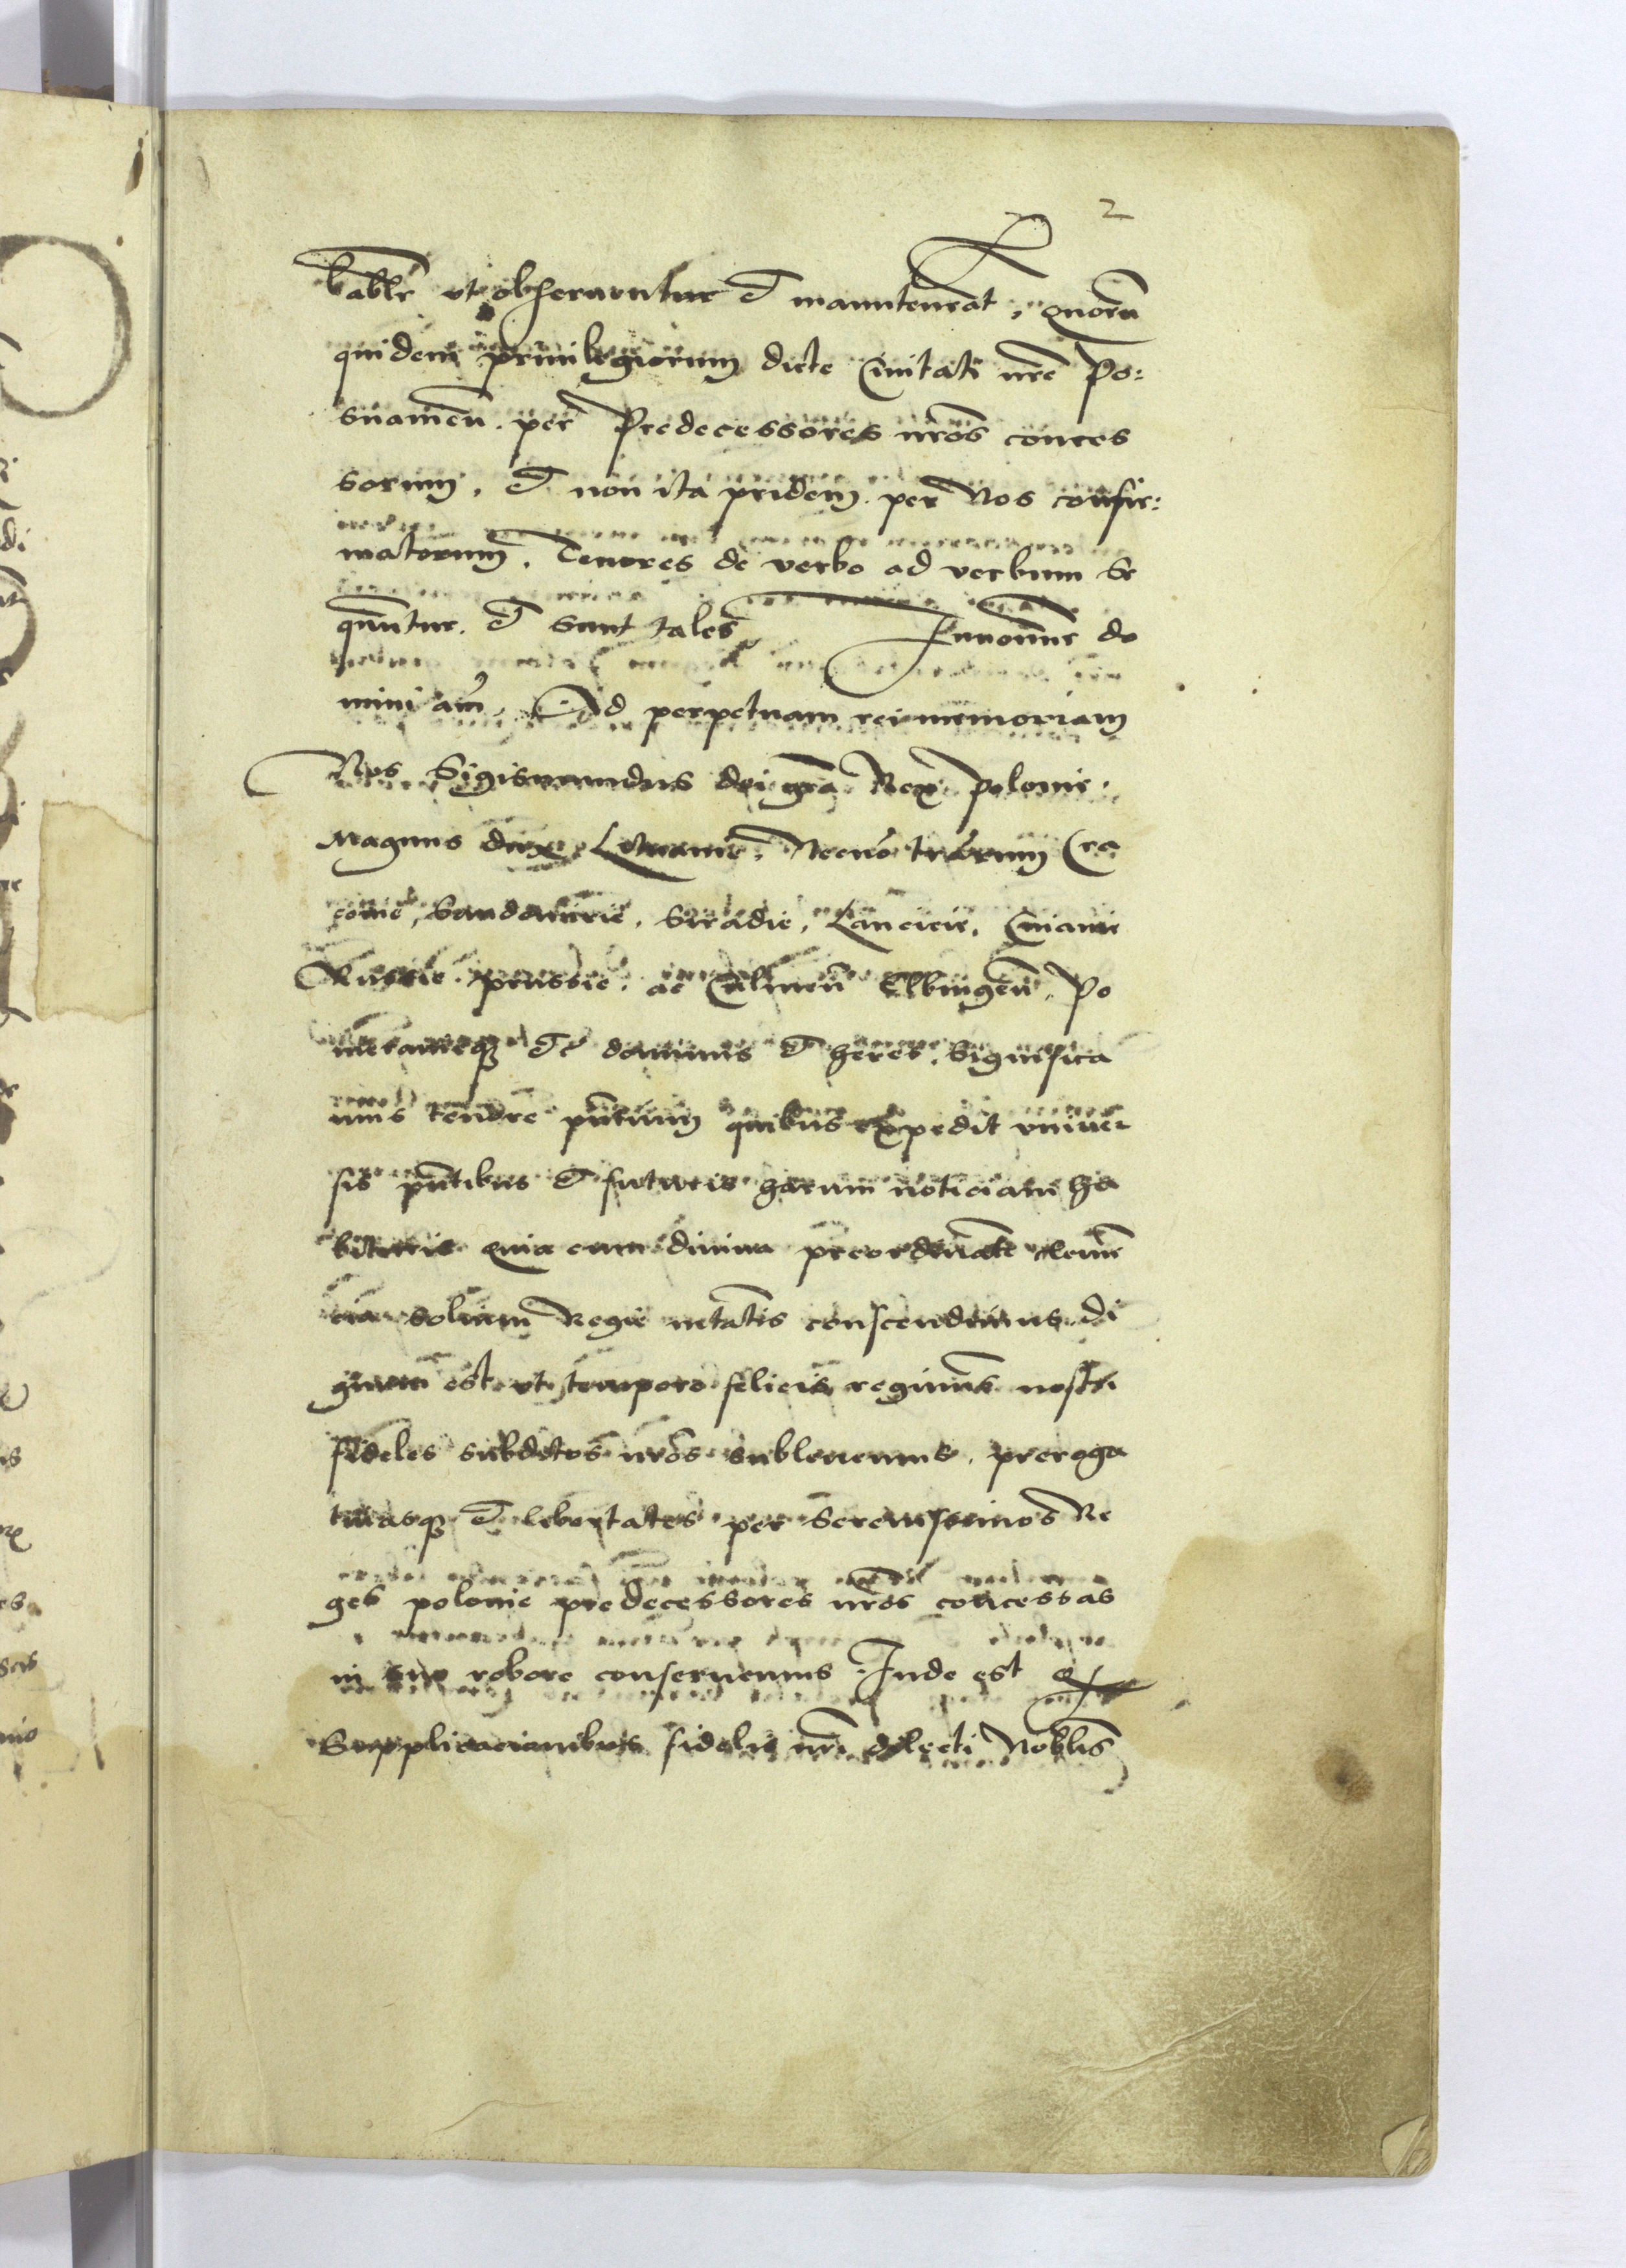 2
bablr̄ vt obseruentur et manuteneāt, quorū
quidem priuilegiorum dicte Ciuitati nr̄e Po:
snanieñ. per Predecessores nr̄os conces
sorum, et non ita pridem. per Nos confir:
matorum, Tenores de verbo ad verbum se
quūntur. et sunt tales In nomine do
mini am̄. Ad perpetuam rei memoriam
Nos Sigismundus dei gr̄a Rex Polonie.
Magnus dux Lituanie, Necnō terrarum Cra
couie, Sandomirie, Siradie, Lancicie, Cuiauie
Russie. prussie. ac Culmeñ Elbingeñ. Po
meranieq₃ etc̄ dominus et heres. Significa
mus tenore pñtium quibus expedit vniuer
sis pñtibus et futuris harum noticiam ha
bituris Quia cum diuina preordinate clemē
cia solium Regie mtātis conscendimus. di
gnum est vt tempore felicis regiminis nostri
fideles subditos nr̄os subleuemus. preroga
tiuasq₃ et libertates per Serenissimos Re
ges polonie predecessores nr̄os concessas
in suo robore conseruemus. Inde est q
Supplicacionibus fidelis nr̄i dilecti Noblīs